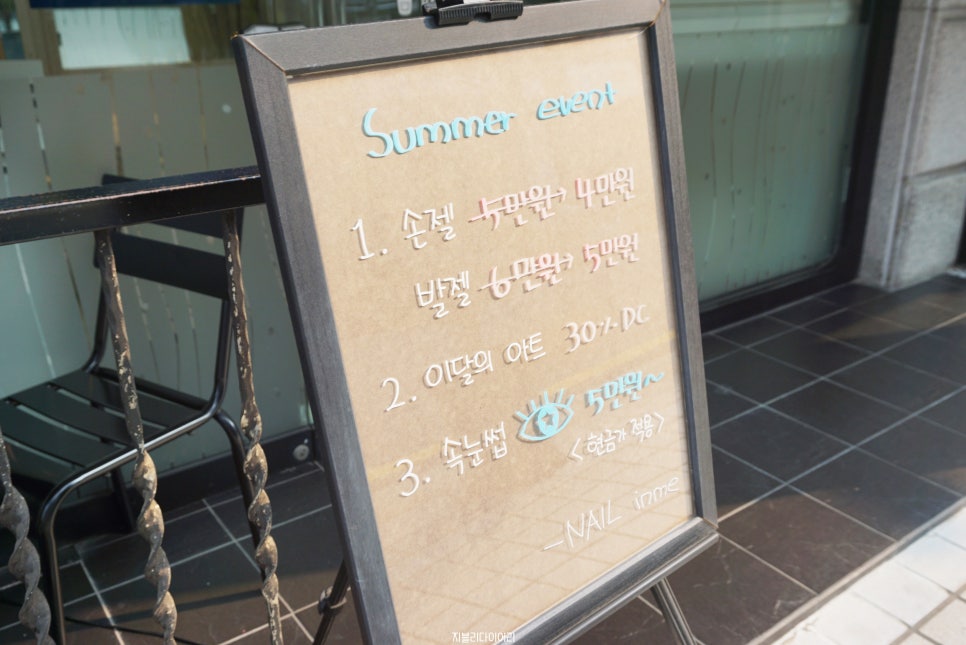 Summer event
1. 손젤 5만원→ 4만원
발젤 6만원→ 5만원
2. 이달의 아트 30% DC
3. 속눈썹 5만원~
<현금가 적용>
-NAIL inme
지블리다이어리